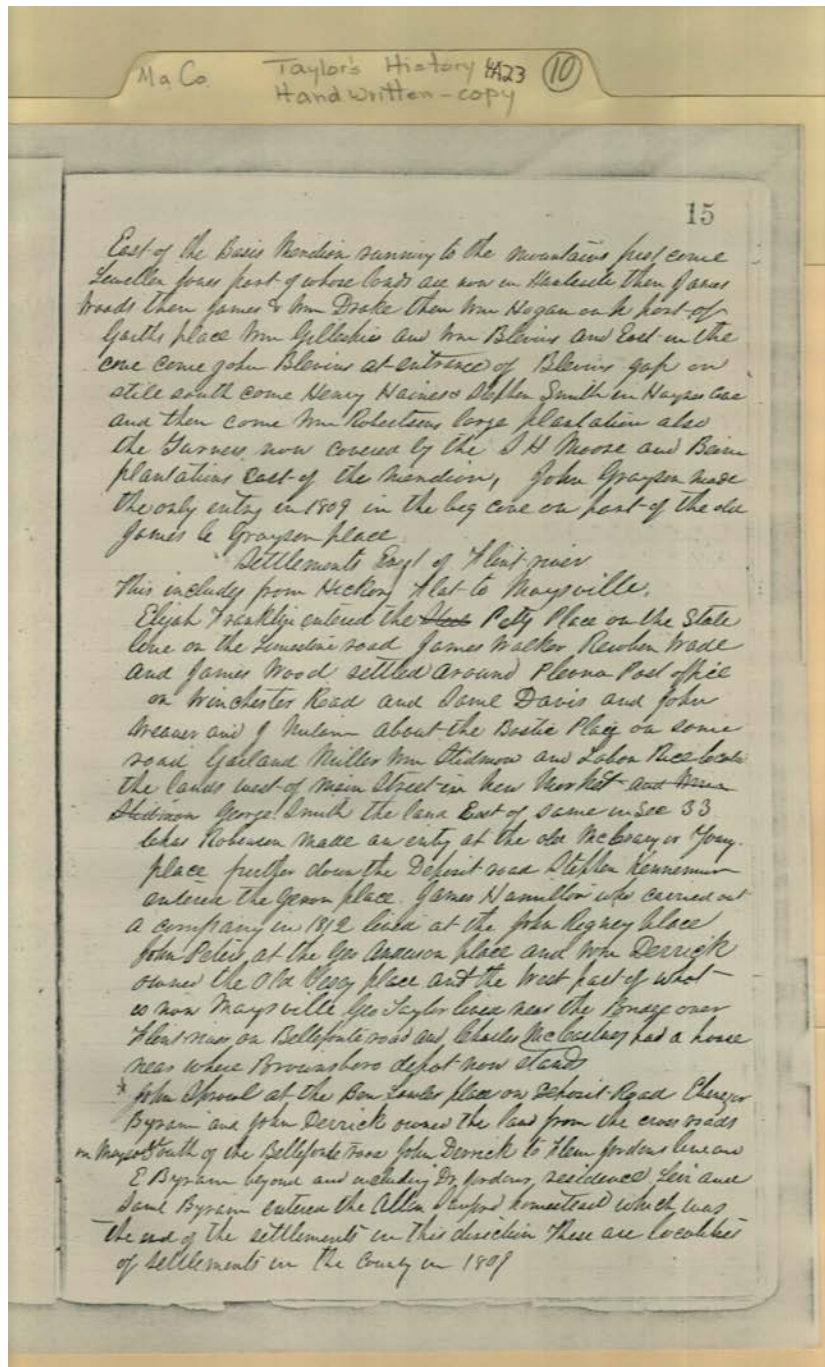 Ma Co. Taylor's History 4A23 10
Handwritten-copy
15
East of the Basis Meridian running to the mountains first come
Lewellen Jones part of whose lands are now in Huntsville then James
Woods then James & Wm Drake then Wm Hogan on part of
Garths place Wm Gillespies and Wm Blevins and East in the
cove come John Blevins at entrance of Blevins gap on
still south come Henry Haines & Stephen Smith in Haynes Cove
and then come Wm Robertsons large plantation also
the Turners now covered by the S H Moore and Beirne
plantations East of the meridian, John Grayson made
the only entry in 1809 in the big cove on part of the old
James Grayson place
Settlements East of Flint river
This includes from Hickory Flat to Maysville.
Elijah Franklin entered the Petty Place on the State
line on the Limestone road James Walker Reuben Wade
and James Wood settled around Plevna Post office
on Winchester Road and Saml Davis and John
and J about the Bostic Place on same
road Garland Miller Wm Stidmon and Labon Rice
the lands west of main Street in New Market and
Stidmon George Smith the land East of same in Sec 33
Robinson made an entry at the old McCrary or
place further down the Deposit road Stephen Kennemur
entered the place. James Hamilton who carried out
a company in 1812 lived at the John Rigney place
John Peters at the Geo Anderson place and Wm Derrick
owned the Old place and the West part of what
is now Maysville Geo Taylor lived near the Bridge over
Flint river on Bellefonte road and Charles McCartney had a house
near where Brownsboro depot now stands
John Sprowl at the Ben Lawler place on Deposit Road Ebenezer
Byram and John Derrick owned the land from the cross roads
South of the Bellefonte road John Derrick to Flem Jordons line and
E Byram beyond and including Dr Jordons, residence Levi and
Saml Byram entered the Allen homestead which was
the end of the settlements in this direction These are localities
of settlements in the County in 1809